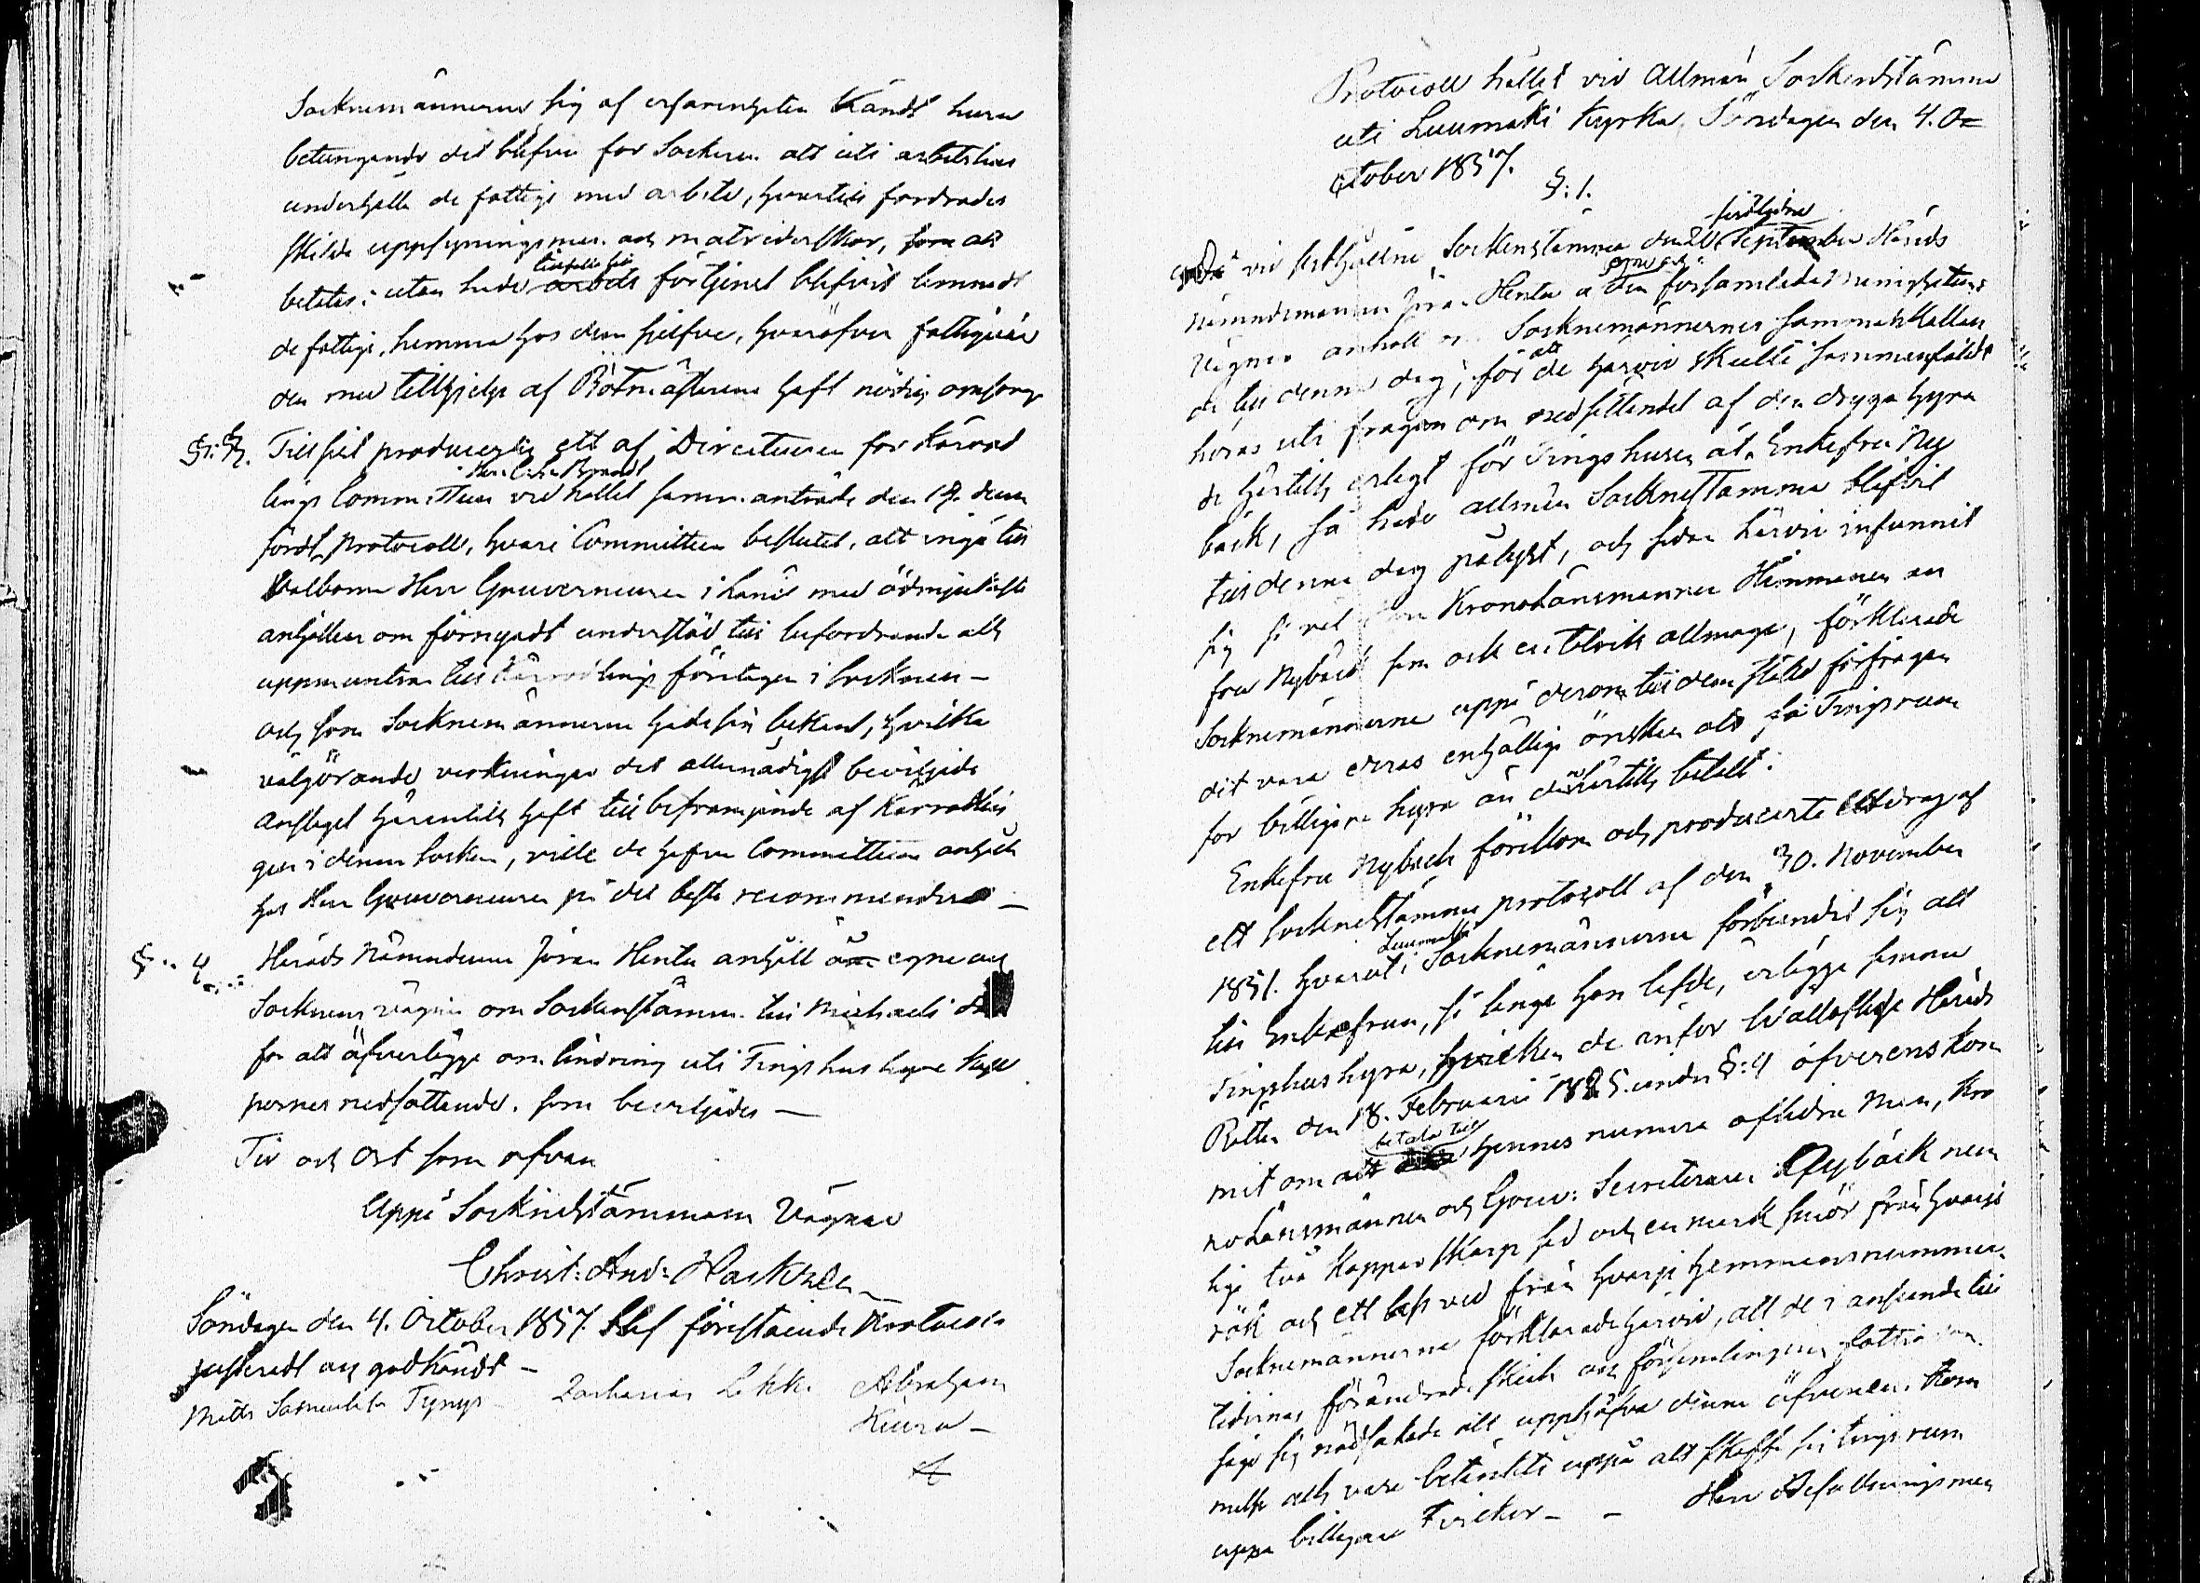 Socknemännerne sig af erfarenheten kändt huru
betungande det blifver för Socknen att uti arbetshus
underhålla de fattige med arbete, hvartill fordrades
skilde uppsyningsmen och matrederskor, som att
betalas; utan hade arbets förtjenst blifvit lemnadt
de fattige, hemma hos dem sjelfve, hvaröfver fattigvår
den med tillhjelp af Rotmästarene haft nödig omsorg
§: 3. Till slut producerades ett af Directionen för kärrod
lings Committeen vid hållet sammanträde den 17. dennes
fördt Protocoll, hvari Committeen beslutat, att ingå till
Välborne Herr Gouverneuren i Länet med ödmjukaste
anhållan om förnyadt understöd till befordrande och
uppmuntran till kärrodlings företagen i Socknen –
och som Socknemännerne hade sig bekant, hvilka
välgörande verkningar det allernådigst beviljade
anslaget härintills haft till befrämjande af Kärrodlin
gen i denna Socken, ville de hafva Committeens anhållan
hos Herr Gouverneuren på det bästa recommenderad –
§: 4. Härads Nämndeman Jöran Hentu anhöll å egne och
Socknens vägnar om Sockenstämma till Michaeli dag
för att öfverlägga om lindring uti Tingshus hyre kap
pornes nedsättande. som beviljades –
Tid och Ort som ofvan
Uppå Sockenestämmans Vägnar
Christ: And: Hackzell
Söndagen den 4. October 1857. Blef förestående Protocoll
justeradt och godkändt –
Matts Tynys Zacharias Lekki Abraham
Kiuru –
Protocoll hållet vid Allmän Sockenstämma
uti Luumäki Kyrka Söndagen den 4. Oc
tober 1857.
§: 1.
vid sisthållne Sockenstämma den 20 September Härads
nämndeman Jöran Hentu å egne och församlade menighetens
Vägnar anhöll om Socknemännernes sammankallan
de till denna dag, för att de härvid skulle sammanfäldt
höras uti frågan om nedsättandet af den dryga hyra
de härtills erlagt för Tingshuset åt Enkefru Ny
bäck, så hade allmän Socknestämma blifvit
till denna dag pålyst, och sedan härvid infunnit
sig så väl Kronolänsmannen Hämmenen en
fru Nybäck som ock en talrik allmoge, förklarade
Socknemännerne uppå derom till dem stäld förfrågan
dit vara deras enhällige önskan att få Tingsrum
för billigare hyra än den härtills betalt.
Enkefru Nybäck förestälde och producerte Utdrag af
ett Socknestämma protocoll af den 30. November
1851. hvaruti Luumäki Socknemännerne förbundit sig att
till Enkefrun, så länge hon lefde, erlägga samma
Tingshushyra, hvilken de inför Wällofliga Härads
Rätten den 18. Februarii 1825. under §: 4 öfverenskom
mit om att betala till hennes numera aflidne Man, Kro
nolänsmannen och Gouv: Secreteraren Nybäck nem
lige två kappar skarp säd och en mark smör från hvarje
rök och ett lass ved från hvarje hemmansnummer.
Socknemännerne förklarade härvid, att de i anseende till
tidernas förändrade skick och församlingens fattigdom
sågo sig nödsakade att upphäfva denna öfverenskom
melse och vara betänkte uppå att skaffa sig tings rum
uppå billigare Vilckor – – Herr Befallningsman